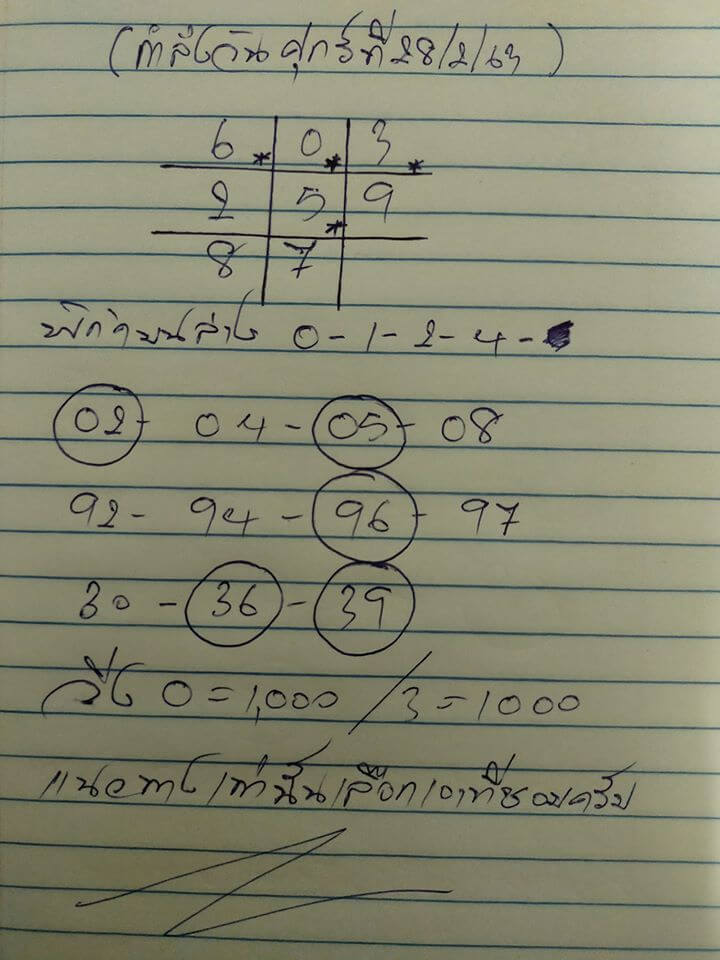 (กำลังวันศุกร์ที่ 28/2/63)
6* 0* 3*
2 5* 9
8 7
พิกัดบนล่าง 0-1-2-4-
02- 04- 05- 08
92- 94- 96- 97
30 - 36 - 39
วิ่ง 0=1,000 / 3=1000
แนวทางเท่านั้นเลือกเอาที่ชอบครับ